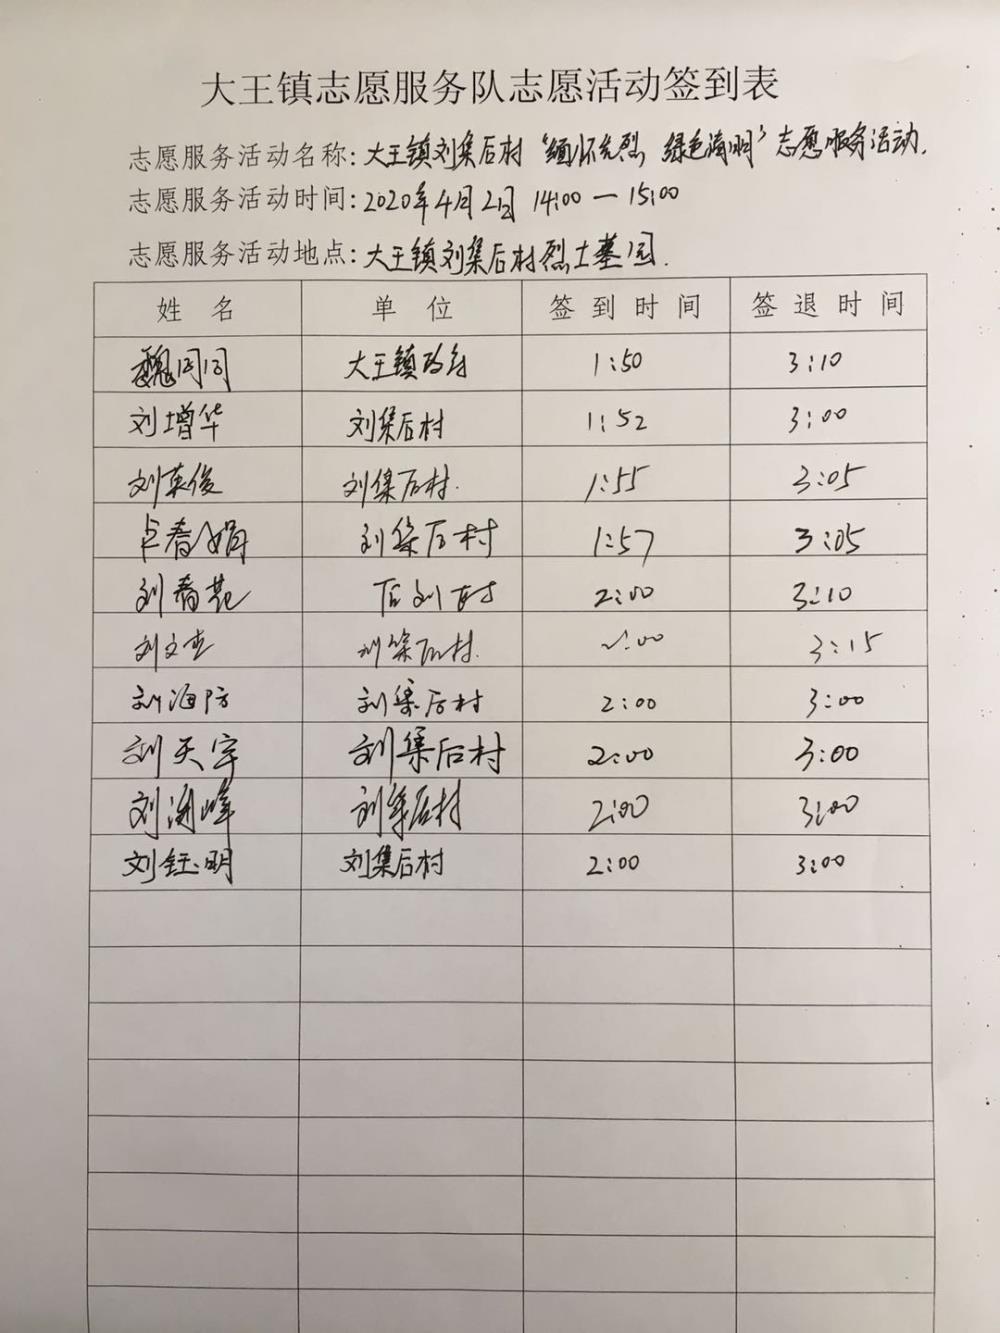 大王镇志愿服务队志愿活动签到表
志愿服务活动名称:大王镇刘集后村“缅怀先烈 绿色清明”志愿服务活动.
志愿服务活动时间:2020年4月2日 14:00—15:00
志愿服务活动地点:大王镇刘集后村烈士墓园.
姓 名 单 位 签到时间 签退时间
魏同同 大王镇政府 1:50 3:10
刘增华 刘集后村 1:52 3:00
刘英俊 刘集后村. 1:55 3:05
卢春娟 刘集后村 1:57 3:05
刘春花 后刘村 2:00 3:10
刘文杰 刘集后村. 2:00 3:15
刘海防 刘集后村 2:00 3:00
刘天宇 刘集后村 2:00 3:00
刘渊峰 刘集后村 2:00 3:00
刘钰明 刘集后村 2:00 3:00